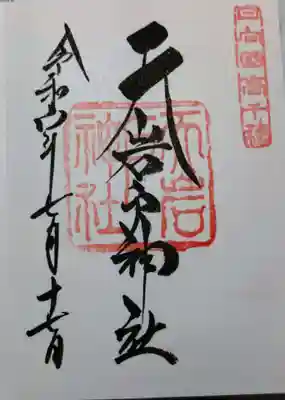 日向国高千穂
天岩戸神社
天岩戸神社
令和 年七月十七日